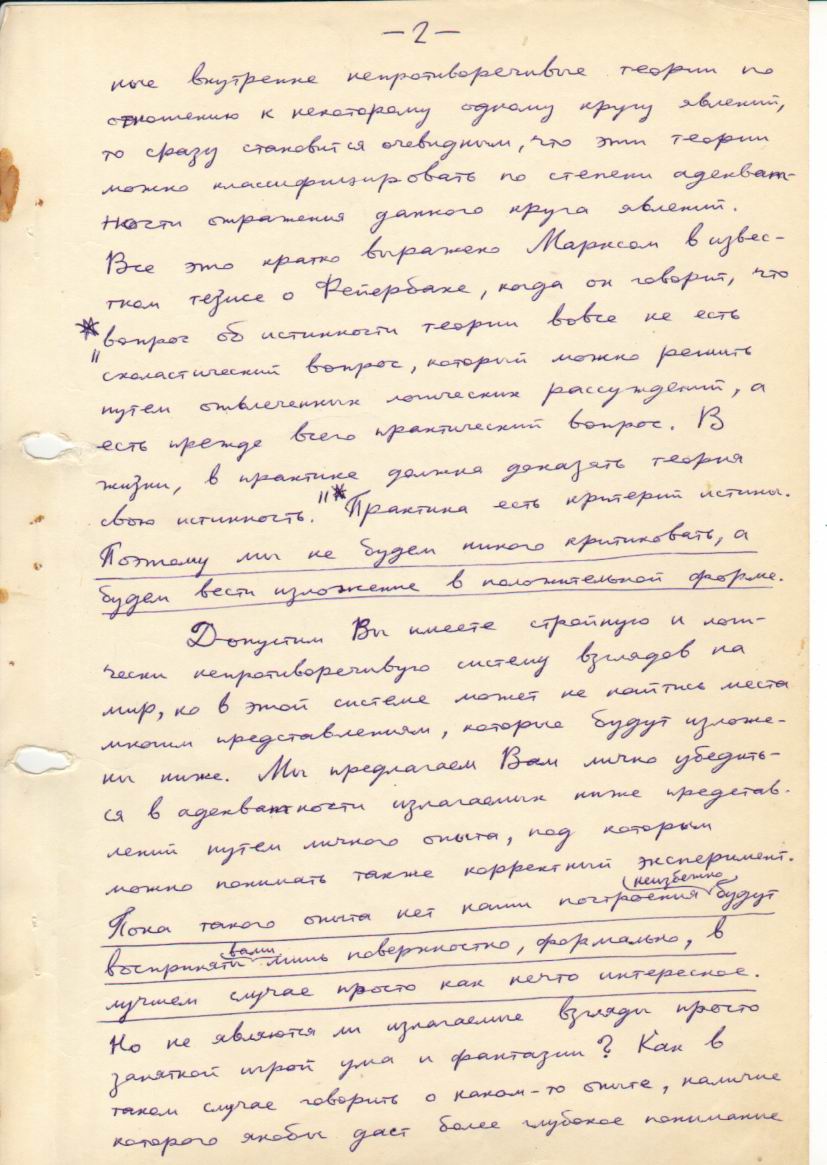 —2—
ные внутренне непротиворечивые теории по
отношению к некоторому одному кругу явлений,
то сразу становится очевидным, что эти теории
можно классифицировать по степени адекват-
ности отражения данного круга явлений.
Все это кратко выражено Марксом в извес-
тном тезисе о Фейербахе, когда он говорит, что
*вопрос об истинности теории вовсе не есть
"схоластический вопрос, который можно решить
путем отвлеченных логических рассуждений, а
есть прежде всего практический вопрос. В
жизни, в практике должна доказать теория
свою истинность."* Практика есть критерий истины.
Поэтому мы не будем никого критиковать, а
будем вести изложение в положительной форме.
Допустим Вы имеете стройную и логи-
чески непротиворечивую систему взглядов на
мир, но в этой системе может не найтись места
многим представлениям, которые будут изложе-
ны ниже. Мы предлагаем Вам лично убедить-
ся в адекватности излагаемых ниже представ-
лений путем личного опыта, под которым
можно понимать также корректный эксперимент.
(неизбежно)
Пока такого опыта нет наши построения будут
вами
восприняты лишь поверхностно, формально, в
лучшем случае просто как нечто интересное.
Но не являются ли излагаемые взгляды просто
занятной игрой ума и фантазии? Как в
таком случае говорить о каком-то опыте, наличие
которого якобы даст более глубокое понимание